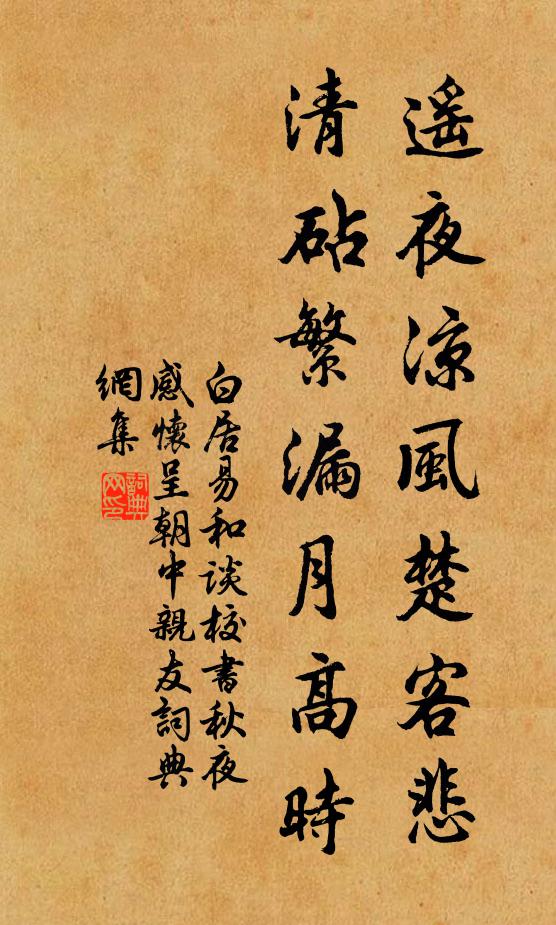 遥夜涼風楚客悲
清砧繁漏月高時
白居易和谈校書秋夜
感懷呈朝中親友詞典
網集
詞典网印